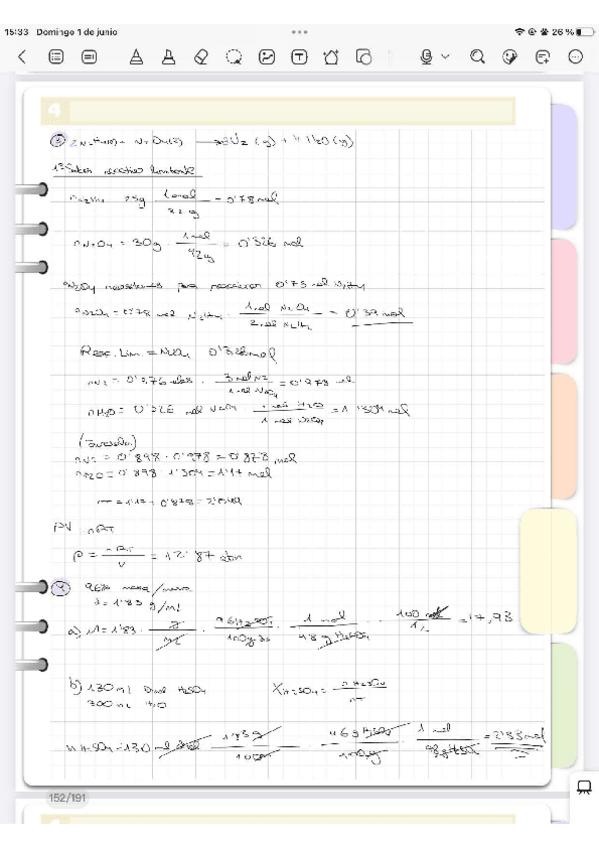 15:33 Domingo 1 de junio 26 %
4
3 2 N2H4(l) + N2O4(l) → 3N2 (g) + 4 H2O (g)
1º Saber reactivo limitante
nN2H4 = 25g · 1 mol / 32 g = 0'78 mol
nN2O4 = 30g · 1 mol / 92 g = 0'326 mol
N2O4 necesitamos para reaccionar 0'78 mol N2H4
nN2O4 = 0'78 mol N2H4 · 1 mol N2O4 / 2 mol N2H4 = 0'39 mol
Reac. Lim. = N2O4 0'326 mol
nN2 = 0'326 · 3 mol N2 / 1 mol N2O4 = 0'978 mol
nH2O = 0'326 mol N2O4 · 4 mol H2O / 1 mol N2O4 = 1'304 mol
nN2 = 0'898 · 0'978 = 0'878 mol
nH2O = 0'898 · 1'304 = 1'17 mol
PV nRT
P = nRT / V = 12'87 atm
4 96% masa/masa
d = 1'83 g/ml
a) M = 1'83 · g / ml · 96 g H2SO4 / 100 g · 1 mol / 98 g H2SO4 · 1000 ml / 1L = 17,93
b) 130 ml H2SO4 XH2SO4 = n H2SO4 / nT
300 ml H2O
nH2SO4 = 130 ml · 1'83 g / · 96 g H2SO4 / 100 g · 1 mol / 98 g H2SO4 = 2'33 mol
152/191
4